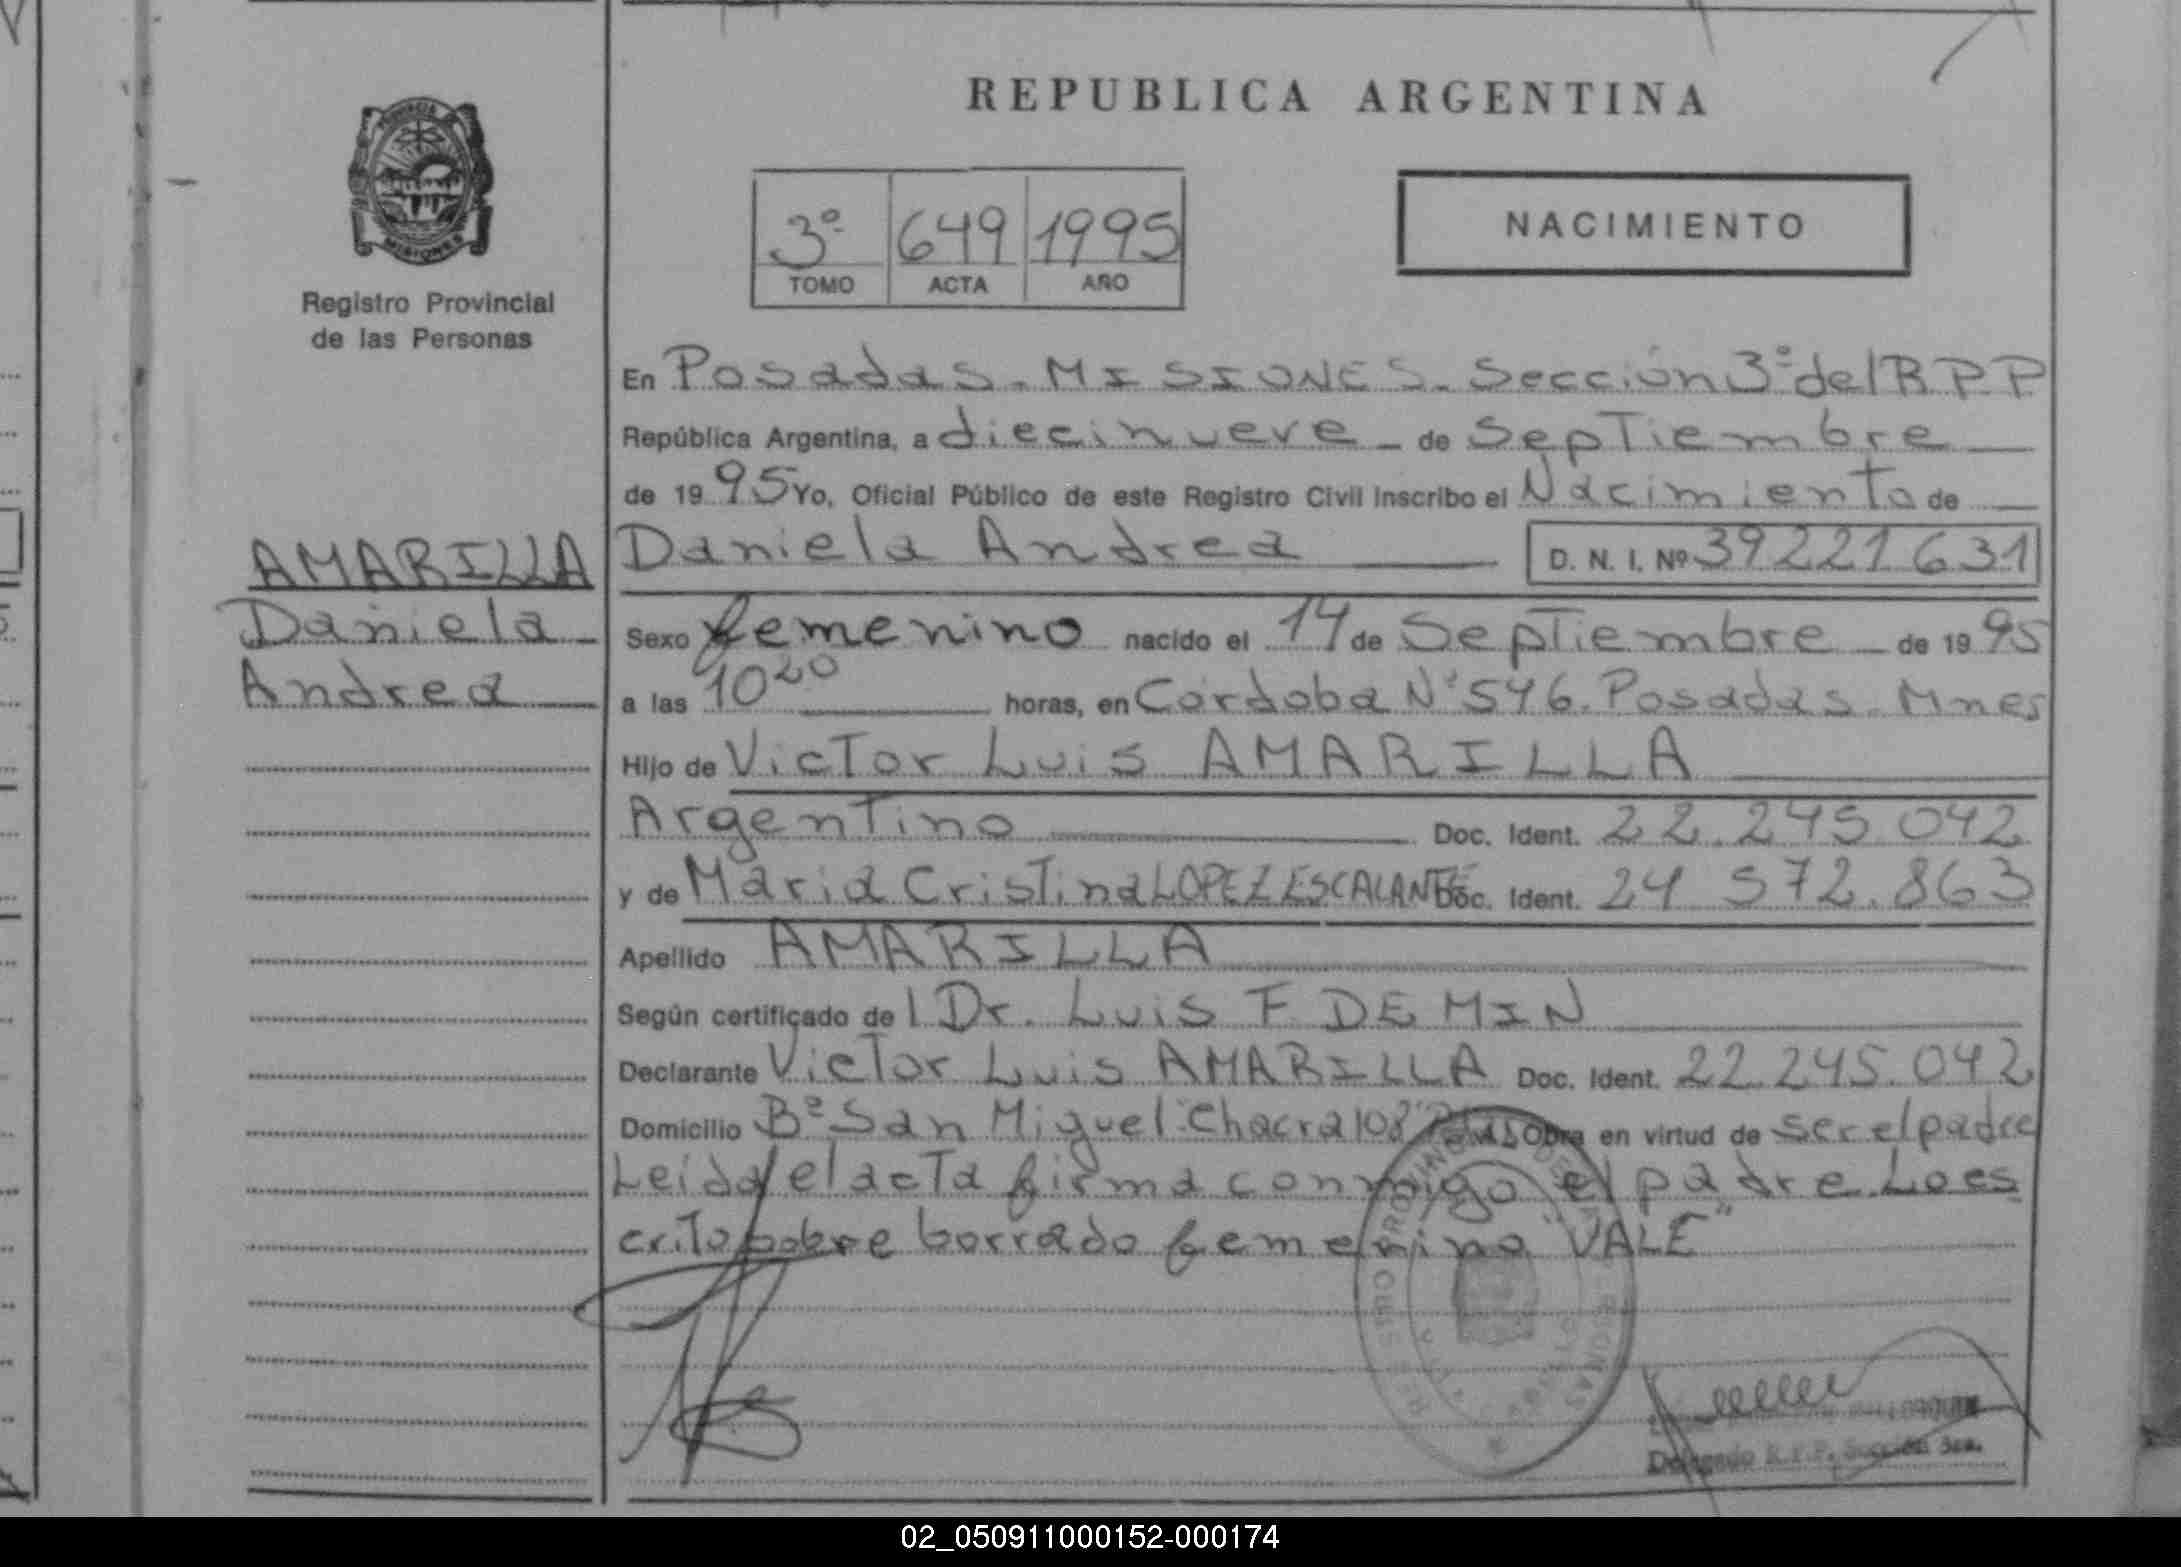 REPUBLICA ARGENTINA
PROVINCIA
MISIONES
Registro Provincial
de las Personas
3º 649 1995
TOMO ACTA AÑO
NACIMIENTO
En Posadas. MISIONES. Sección 3º del R P P
República Argentina, a diecinueve de Septiembre
de 1995 Yo, Oficial Público de este Registro Civil inscribo el Nacimiento de
AMARILLA
Daniela
Andrea
Daniela Andrea D. N. I. Nº 39221631
Sexo femenino nacido el 14 de Septiembre de 1995
a las 10 20 horas, en Córdoba Nº 546. Posadas. Mnes
Hijo de Victor Luis AMARILLA
Argentino Doc. Ident. 22.245.042
y de Maria Cristina LOPEZ ESCALANTE Doc. Ident. 24 572.863
Apellido AMARILLA
Según certificado del Dr. Luis F. DEMIN
Declarante Victor Luis AMARILLA Doc. Ident. 22.245.042
Domicilio Bº San Miguel Chacra 108 Obra en virtud de ser el padre
Leida el acta firma conmigo el padre. Lo es
crito sobre borrado femenino "VALE"
Delegado R.P.P. Sección 3ra.
02_050911000152-000174